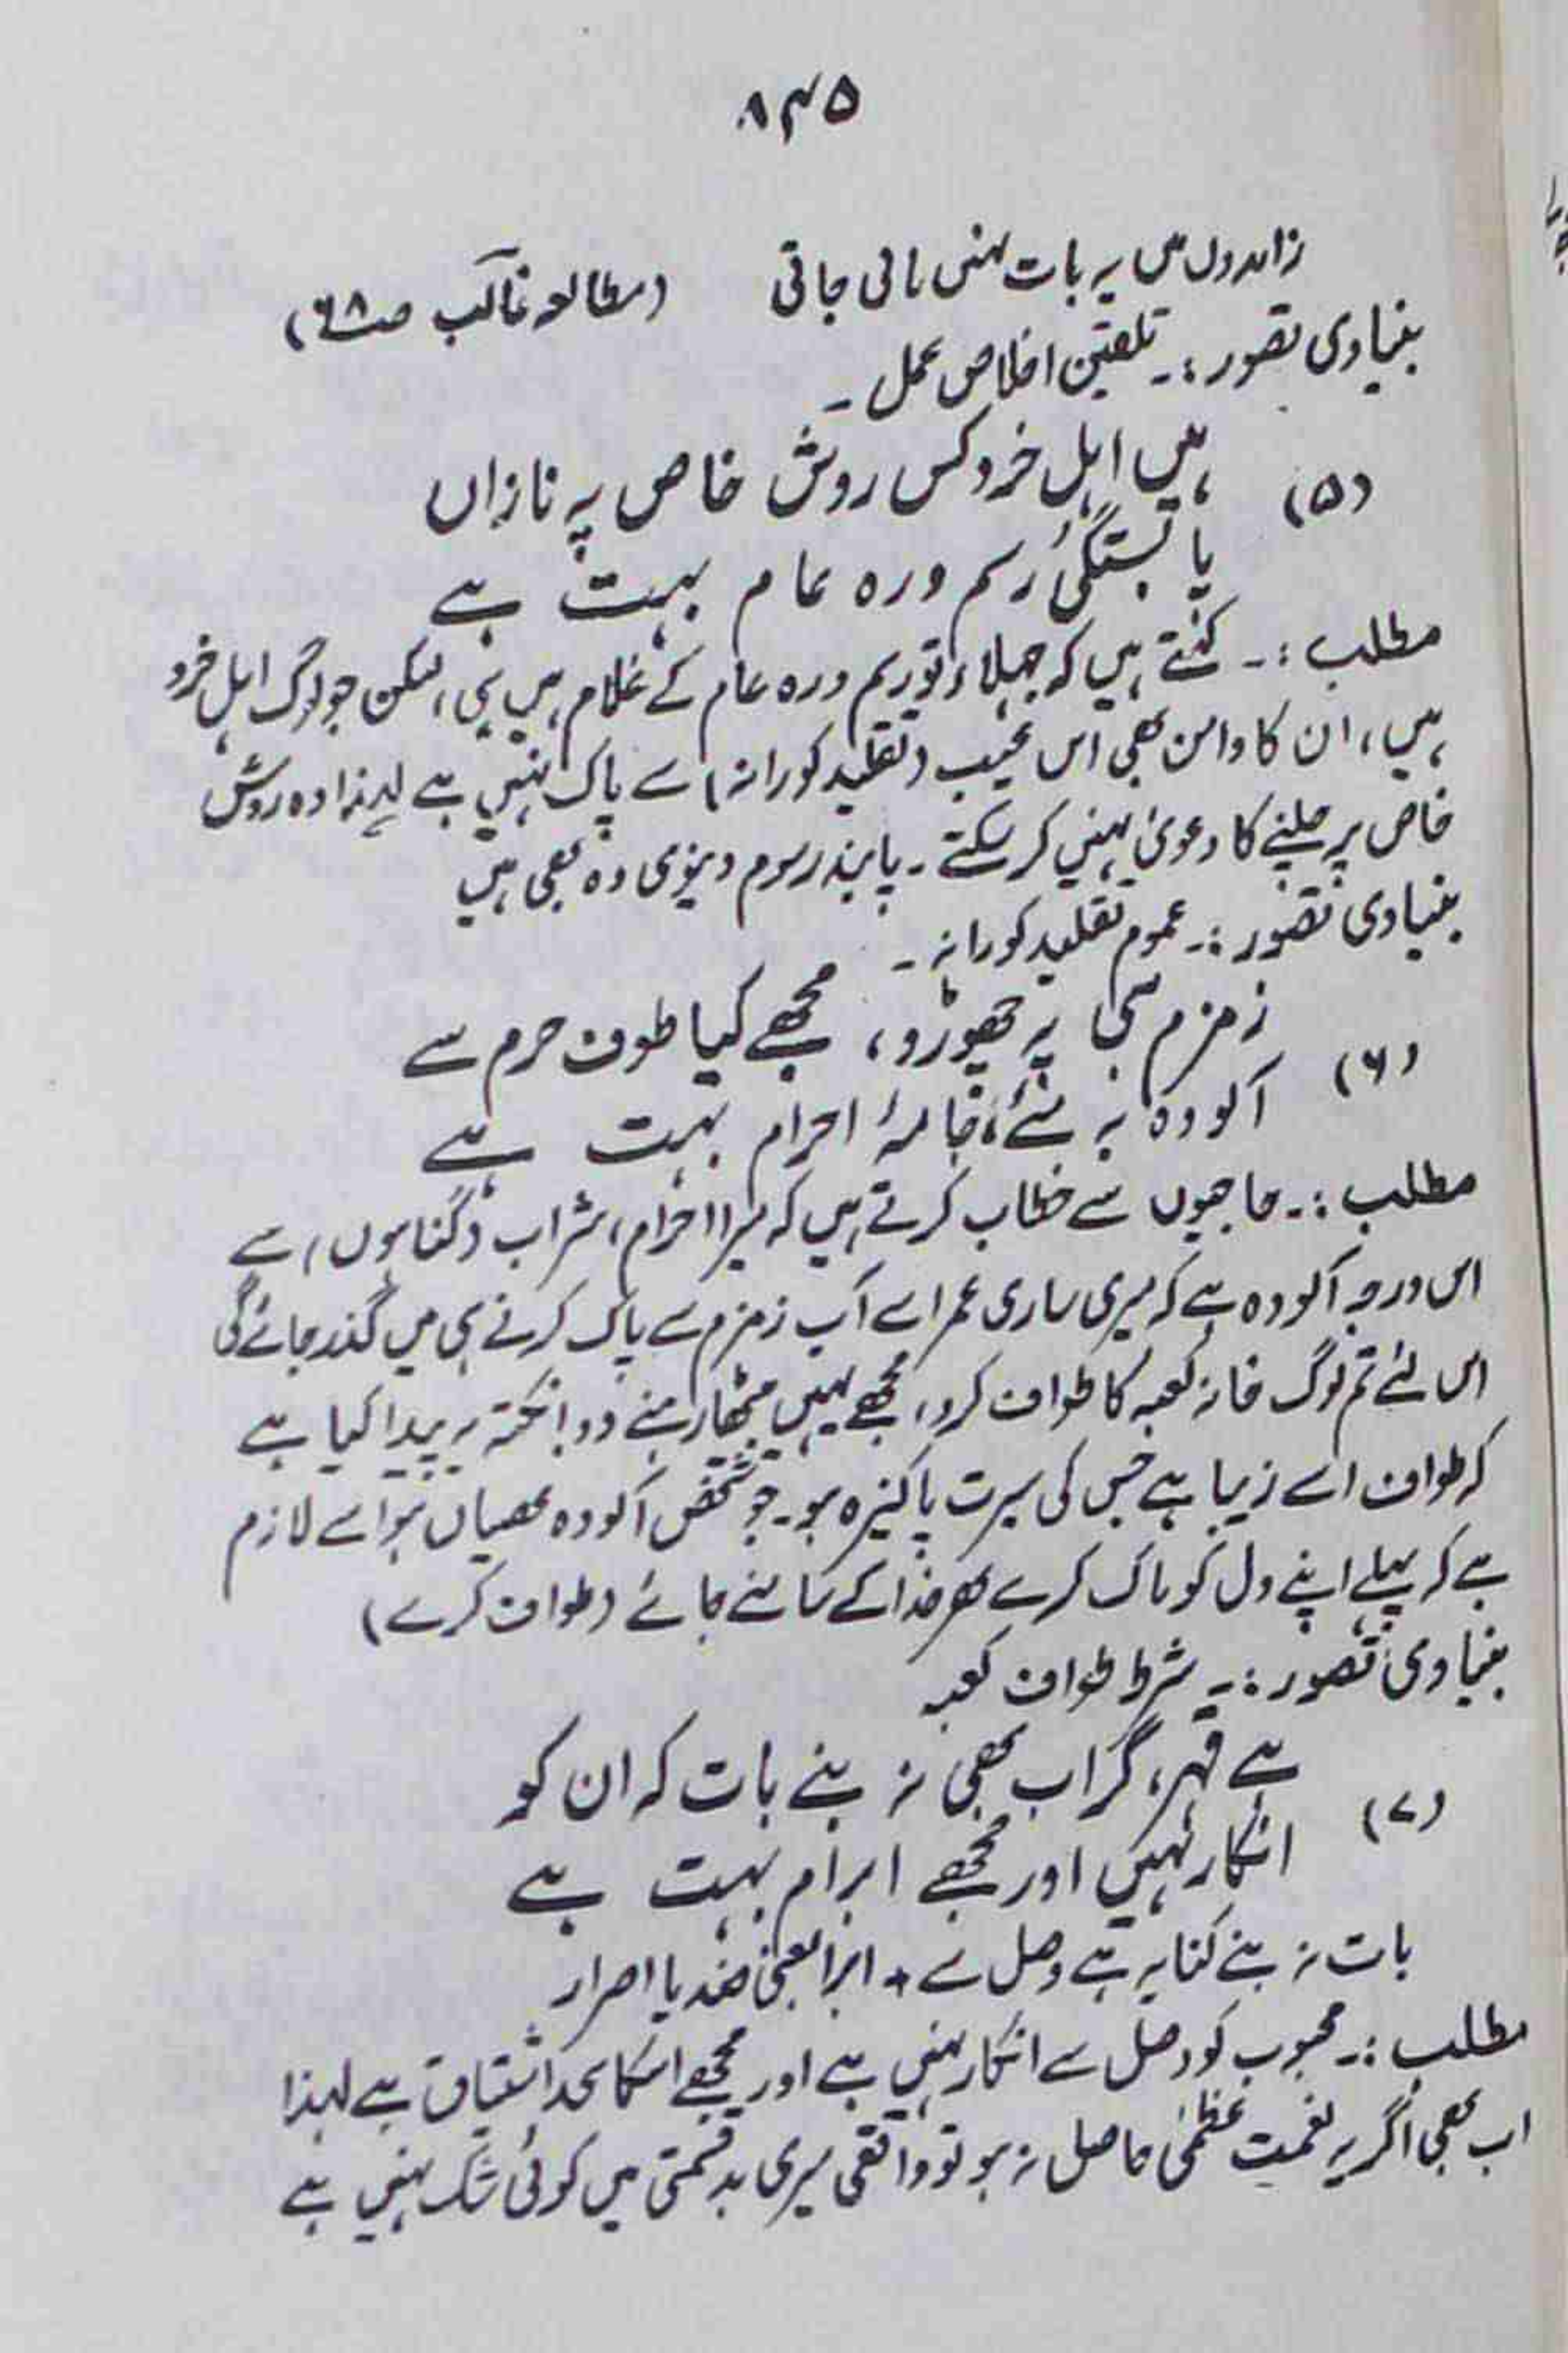 ۸۴۵
زاہدوں میں یہ بات نہیں پائی جاتی (مطالعہ غالب صـ۶۸)
بنیادی تصور :۔ تلقین اخلاص عمل ۔
(۵) ہیں اہل خرد کس روش خاص پہ نازاں
پابستگئ رسم و رہ عام بہت ہے
مطلب :۔ کہتے ہیں کہ جہلاء تو رسم و رہ عام کے غلام ہیں ہی، لیکن جو لوگ اہل خرد
ہیں، ان کا دامن بھی اس عیب (تقلید کورانہ) سے پاک نہیں ہے لہٰذا وہ روش
خاص پر چلنے کا دعویٰ نہیں کر سکتے ۔ پابند رسوم دنیوی وہ بھی ہیں
بنیادی تصور :۔ عموم تقلید کورانہ ۔
(۶) زمزم ہی پہ چھوڑو، مجھے کیا طوف حرم سے
آلودہ بہ مئے، جامۂ احرام بہت ہے
مطلب :۔ حاجیوں سے خطاب کرتے ہیں کہ میرا احرام، شراب (گناہوں) سے
اس درجہ آلودہ ہے کہ میری ساری عمر اسے آب زمزم سے پاک کرنے ہی میں گذر جائے گی
اس لئے تم لوگ خانہ کعبہ کا طواف کرو، مجھے یہیں بیٹھا رہنے دو، نکتہ یہ پیدا کیا ہے
کہ طواف اسے زیبا ہے جس کی سیرت پاکیزہ ہو۔ جو شخص آلودہ عصیاں ہو اسے لازم
ہے کہ پہلے اپنے دل کو پاک کرے پھر خدا کے سامنے جائے (طواف کرے)
بنیادی تصور :۔ شرط طواف کعبہ
(۷) ہے قہر، گر اب بھی نہ بنے بات کہ ان کو
انکار نہیں اور مجھے ابرام بہت ہے
بات نہ بنے کنایہ ہے وصل سے * ابرام بمعنی ضد یا اصرار
مطلب :۔ محبوب کو وصل سے انکار نہیں ہے اور مجھے اسکا بیحد اشتیاق ہے لہٰذا
اب بھی اگر یہ نعمت عظمیٰ حاصل نہ ہو تو واقعی میری بدقسمتی میں کوئی شک نہیں ہے